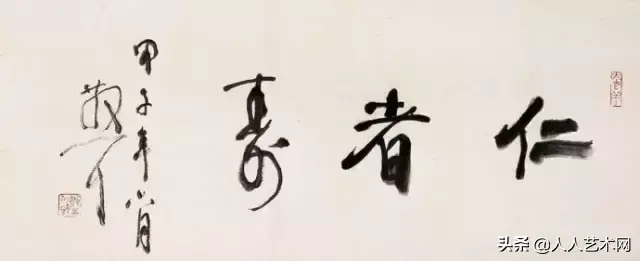 仁者寿
甲子年八月
散耳
头条 @人人艺术网